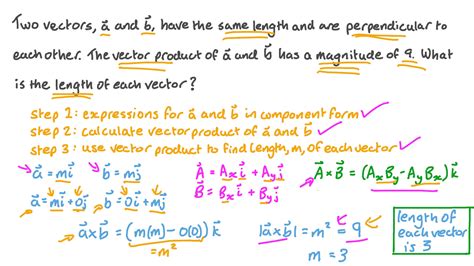 Two vectors, a⃗ and b⃗, have the same length and are perpendicular to
each other. The vector product of a⃗ and b⃗ has a magnitude of 9. What
is the length of each vector?
step 1: expressions for a⃗ and b⃗ in component form ✓
step 2: calculate vector product of a⃗ and b⃗ ✓
step 3: use vector product to find length, m, of each vector ✓
a⃗ = mi⃗ b⃗ = mj⃗
a⃗ = mi⃗ + 0j⃗ b⃗ = 0i⃗ + mj⃗
A⃗ = Aₓi⃗ + Aᵧj⃗
B⃗ = Bₓi⃗ + Bᵧj⃗
A⃗ × B⃗ = (AₓBᵧ - AᵧBₓ)k⃗
a⃗ × b⃗ = (m(m) - 0(0))k⃗
= m²
|a⃗ × b⃗| = m² = 9
m = 3
length of
each vector
is 3